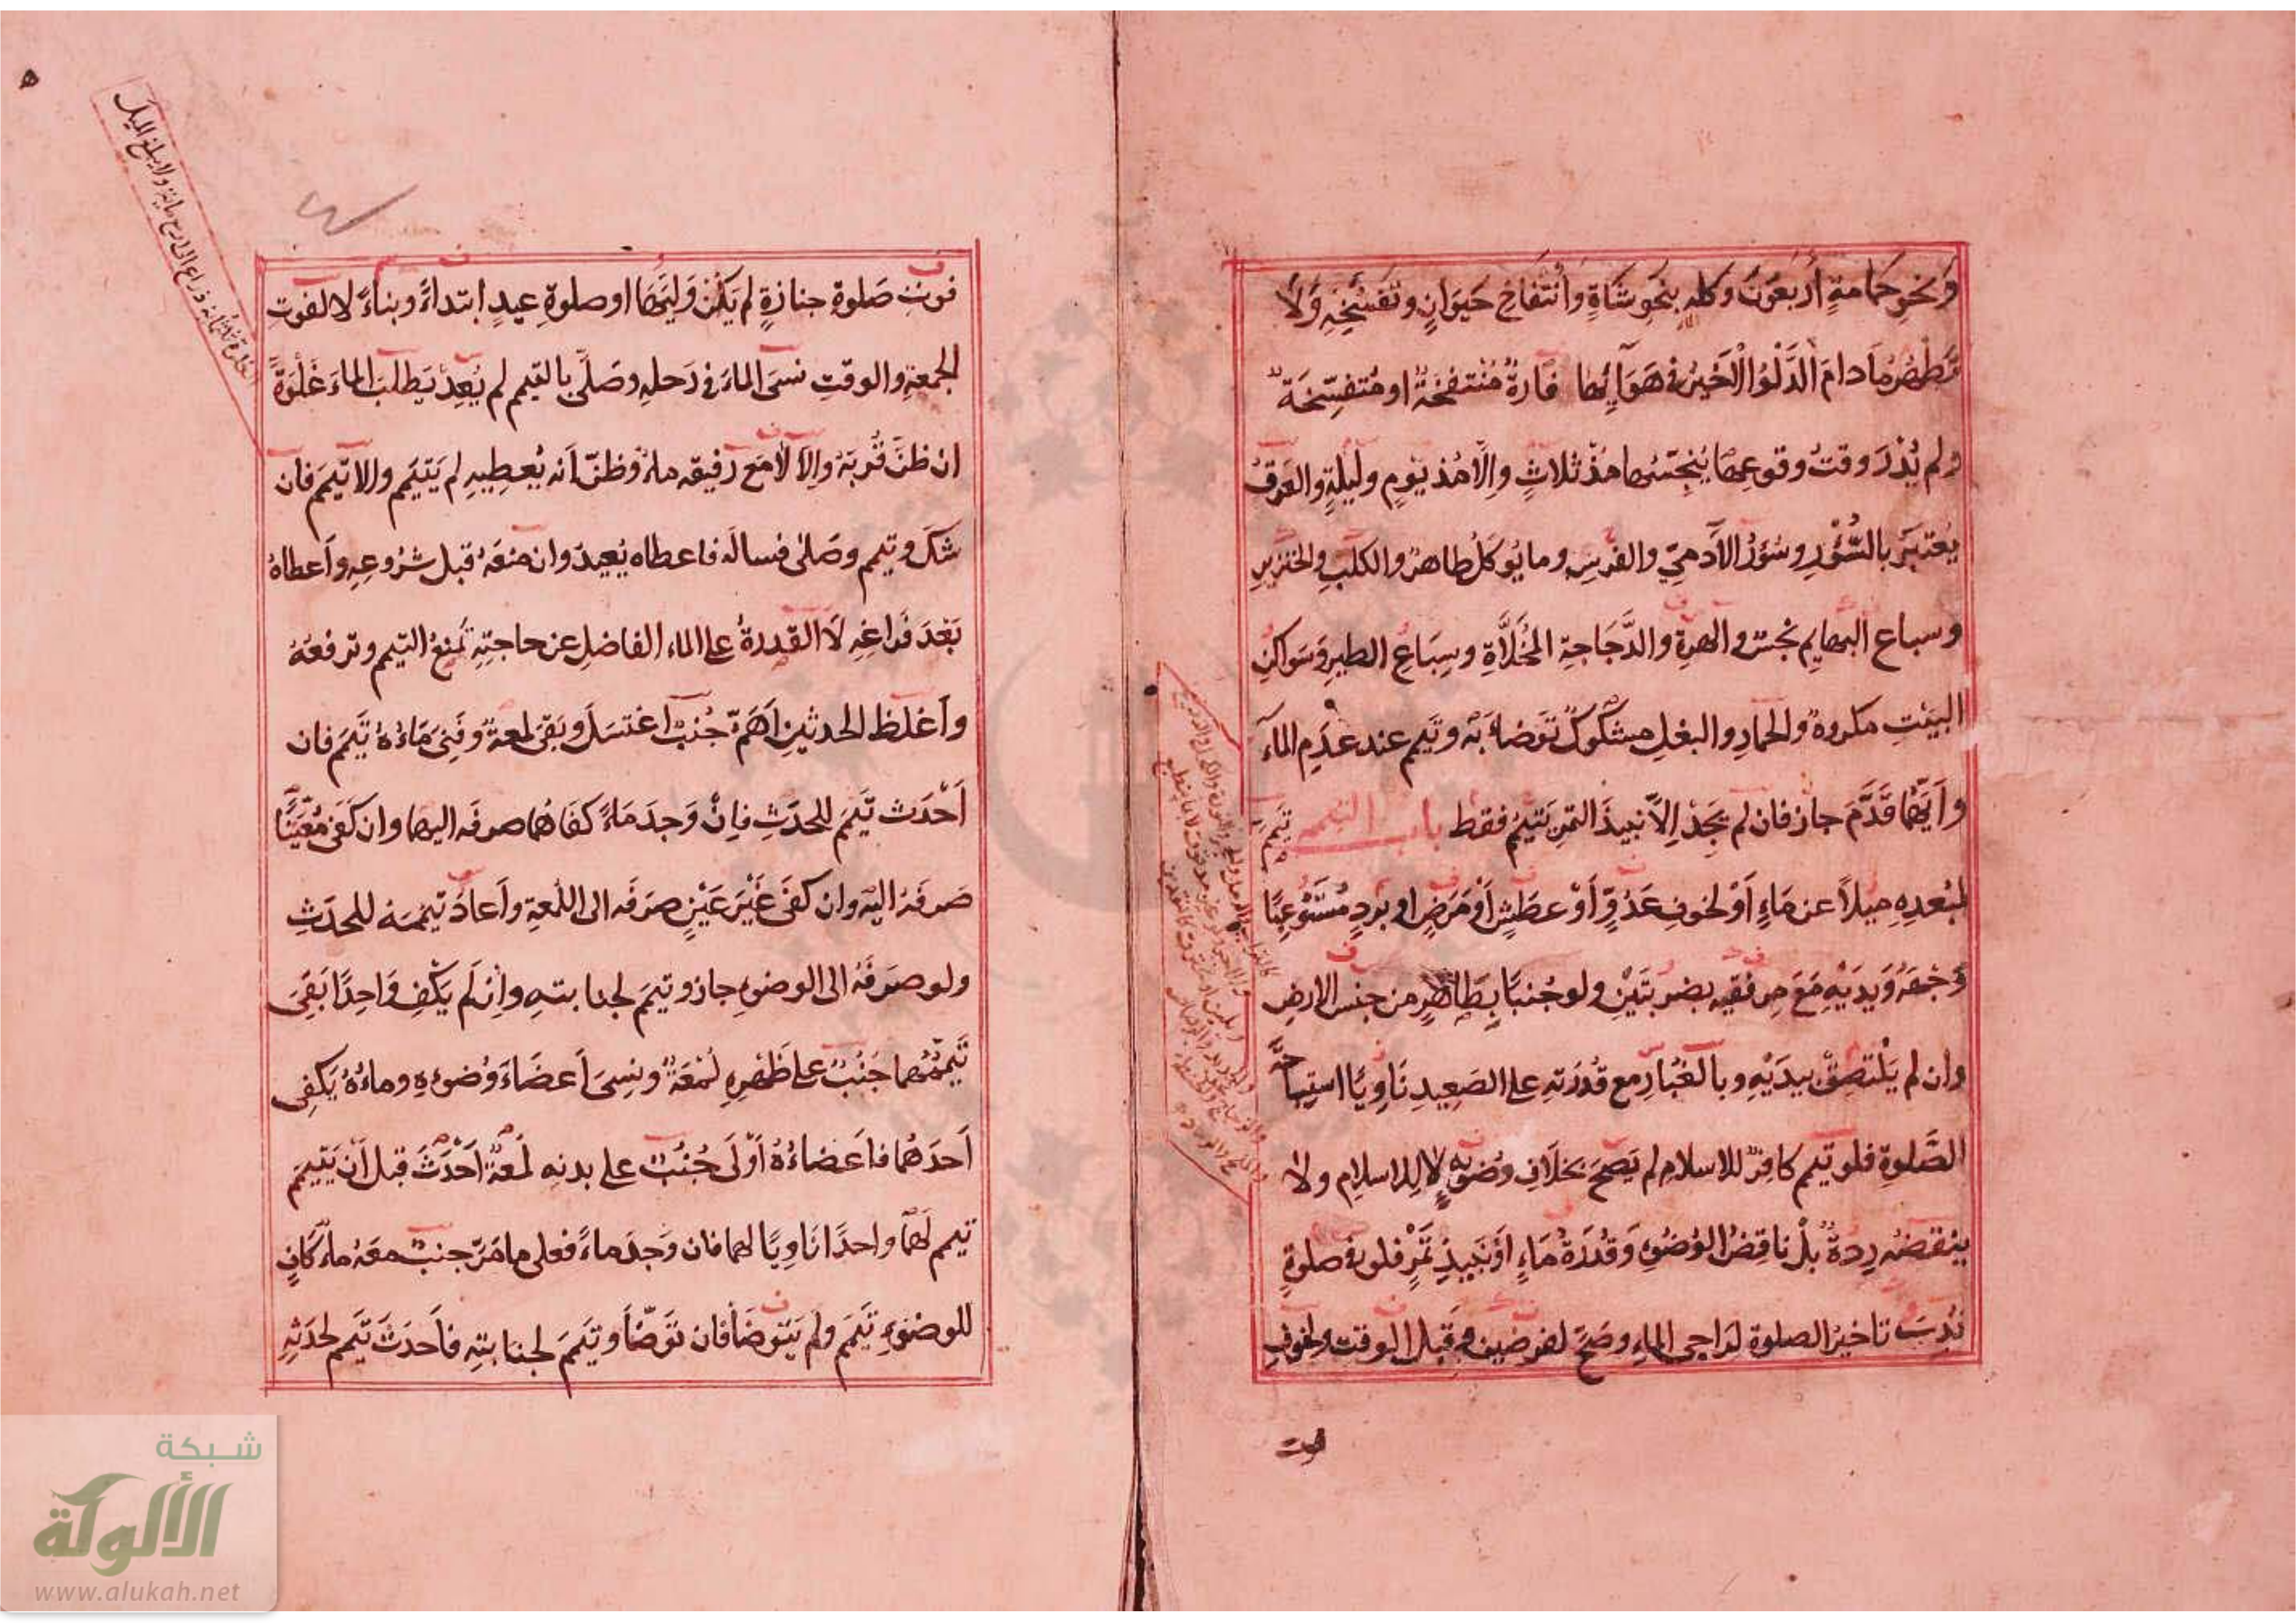 وَنَحْوِ حَمَامَةٍ أَرْبَعُونَ وَكله بنَحوِ شَاةٍ وَانْتِفَاخِ حَيَوَانٍ وتَفَسُّخِهِ وَلَا
يَطْهُرُ مَا دَامَ الدَّلْوُ الْأَخِيرُ في هَوَآئِهَا فارةٌ مُنْتفخَةٌ او مُتفسّخَةٌ
ولم يُدْرَ وقتُ وقوعِهَا يُنجِّسُها مُذْ ثلاثٍ وإلَّا مُذ يَومٍ ولَيلةٍ والعَرَقُ
يُعْتَبَرُ بالسُّؤْرِ وسُؤرُ الآدَميّ والفرسِ وما يُوكَلُ طاهرٌ والكلبِ والخنزيرِ
وسباعِ البهايِمِ نجسٌ والهرةِ والدَّجَاجةِ المُخَلَّاةِ وسِبَاعِ الطيرِ وَسَواكِنِ
البيتِ مكروهٌ والحمارِ والبغلِ مشكوكٌ تَوَضأ بَه وتيمم عند عدمِ المآءِ
وأيهما قدَّمَ جاز فان لم يجد إلّا نبيذَ التمرِ يَتيمم فقط باب التيمم يتيمم
لبُعدِهِ ميلاً عن ماءٍ أوْ لخوفِ عَدُوٍّ أوْ عطشٍ أوْ مَرَضٍ او بردٍ مُسْتَوعِبًا
وَجْهَهُ وَيَدَيْهِ مَعَ مِرفقيه بضربتَيْنِ ولو جُنبًا بِطَاهِرٍ من جنس الارضِ
وان لم يَلْتصِقْ بيدَيْهِ وبالغُبارِ مع قُدرَتهِ على الصَعِيدِ نَاوِيًا استِباحَةَ
الصَّلوةِ فلو تيمم كافرٌ للاسلام لم يَصِحَّ بخلَافِ وُضوئِهِ لا للاسلام ولا
ينقضه رِدةٌ بلْ ناقِضُ الوُضوءِ وَقُدْرَةُ مَاءٍ أوْ نَبيذِ تَمْرٍ فلو في صلوةٍ
نُدِبَ تاخيرُ الصلوة لراجي الماءِ وصَحَّ لفرضين وقَبل الوقت ولخوفِ
فوت
فوتِ صَلوةِ جنازةٍ لم يَكُنْ وَليّهَا او صلوةِ عيدٍ ابتداءً وبناءً لا لفوتِ
الجمعةِ والوقتِ نسىَ الماءَ في رَحلهِ وصَلّى بالتيمم لم يُعِدْ يَطلبُ الماءَ غَلْوَةً
ان ظنَّ قُربَهُ وإلا لا مَع رَفيقه ماءٌ وَظنّ أنه يُعطِيهِ لم يَتيَمم والا تيممَ فان
شكّ وتيمم وصَلّى فساله فاعطاه يُعيد وان منعَهُ قبل شُرُوعِهِ وأعطاهُ
بَعْدَ فَراغِهِ لَا القدرةُ على الماءِ الفاضلِ عن حاجتِهِ تَمنَعُ التيمم وترفعُهُ
وأغلظ الحدثينِ أهَمّ جُنبٌ اغتسَلَ وبَقِيَ لمعةٌ وفَنِيَ مَاءُهُ تيَممَ فان
أَحْدَث تيممَ للحدَثِ فإنْ وَجدَ مَاءً كفَاهُما صرفَه اليهما وان كفَى مُعيّنًا
صَرفَهُ اليه وان كفَى غَيْرَ عَيْنٍ صرَفَه الى اللُمعةِ وأعادَ تيمُمَه للحدَثِ
ولو صَرَفَهُ الى الوضوءِ جاز وتيممَ لجنابتهِ وإن لَم يَكْفِ وَاحِدًا بَقِيَ
تَيَمّمُهما جُنُبٌ على ظَهْرِهِ لُمْعَةٌ ونسِىَ أعضَاءَ وُضوءِهِ وماءُهُ يَكفِى
أحدَهُما فأعضاءُهُ أَوْلَى جُنُبٌ على بدنهِ لُمعَةٌ أحْدَثَ قبل أنْ يتيَممَ
تيمم لَهُما واحدًا نَاوِيًا لهما فان وَجدَ ماءً فعلى ما مَرّ جنبٌ معَهُ ماءٌ كَافٍ
للوضوءِ تيَممَ ولم يتوضأ فان تَوَضَّأ وتيَمَمَ لجنابتِهِ فأحدَثَ تيمم لحدَثِهِ
شبكة
الألوكة
www.alukah.net